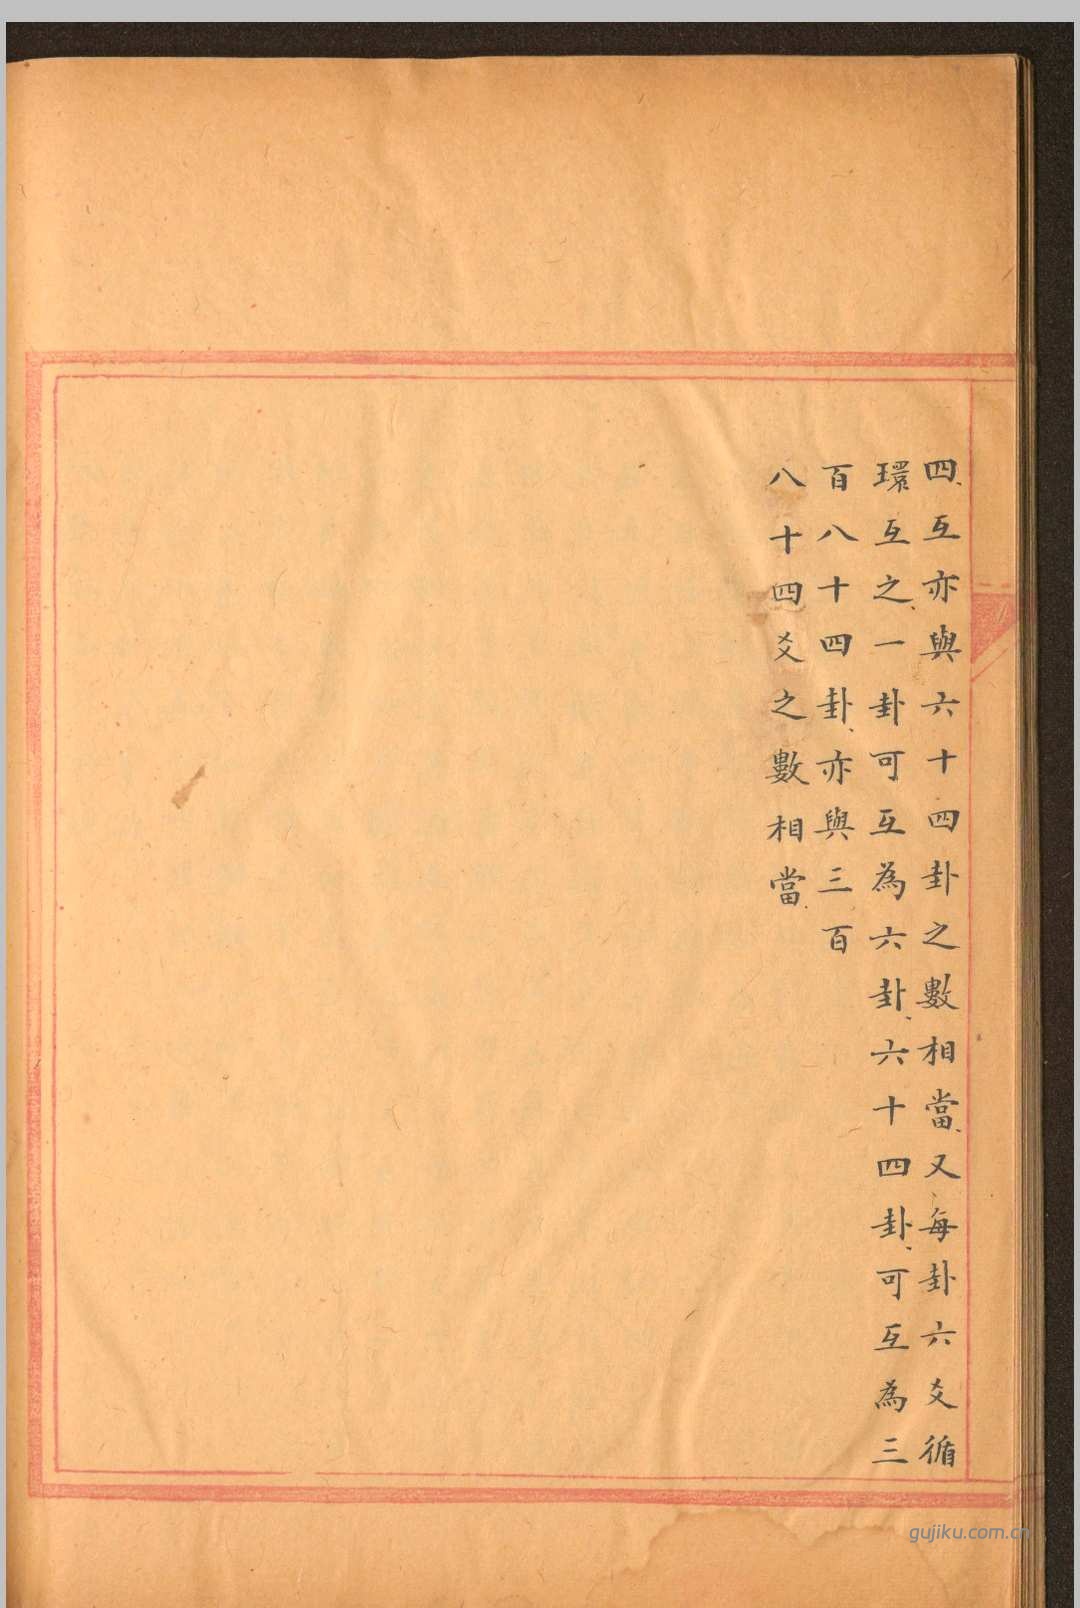 四、互亦與六十四卦之數相當、又每卦六爻循
環互之、一卦可互為六卦、六十四卦、可互為三
百八十四卦、亦與三百
八十四爻之數相當、
gujiku.com.cn